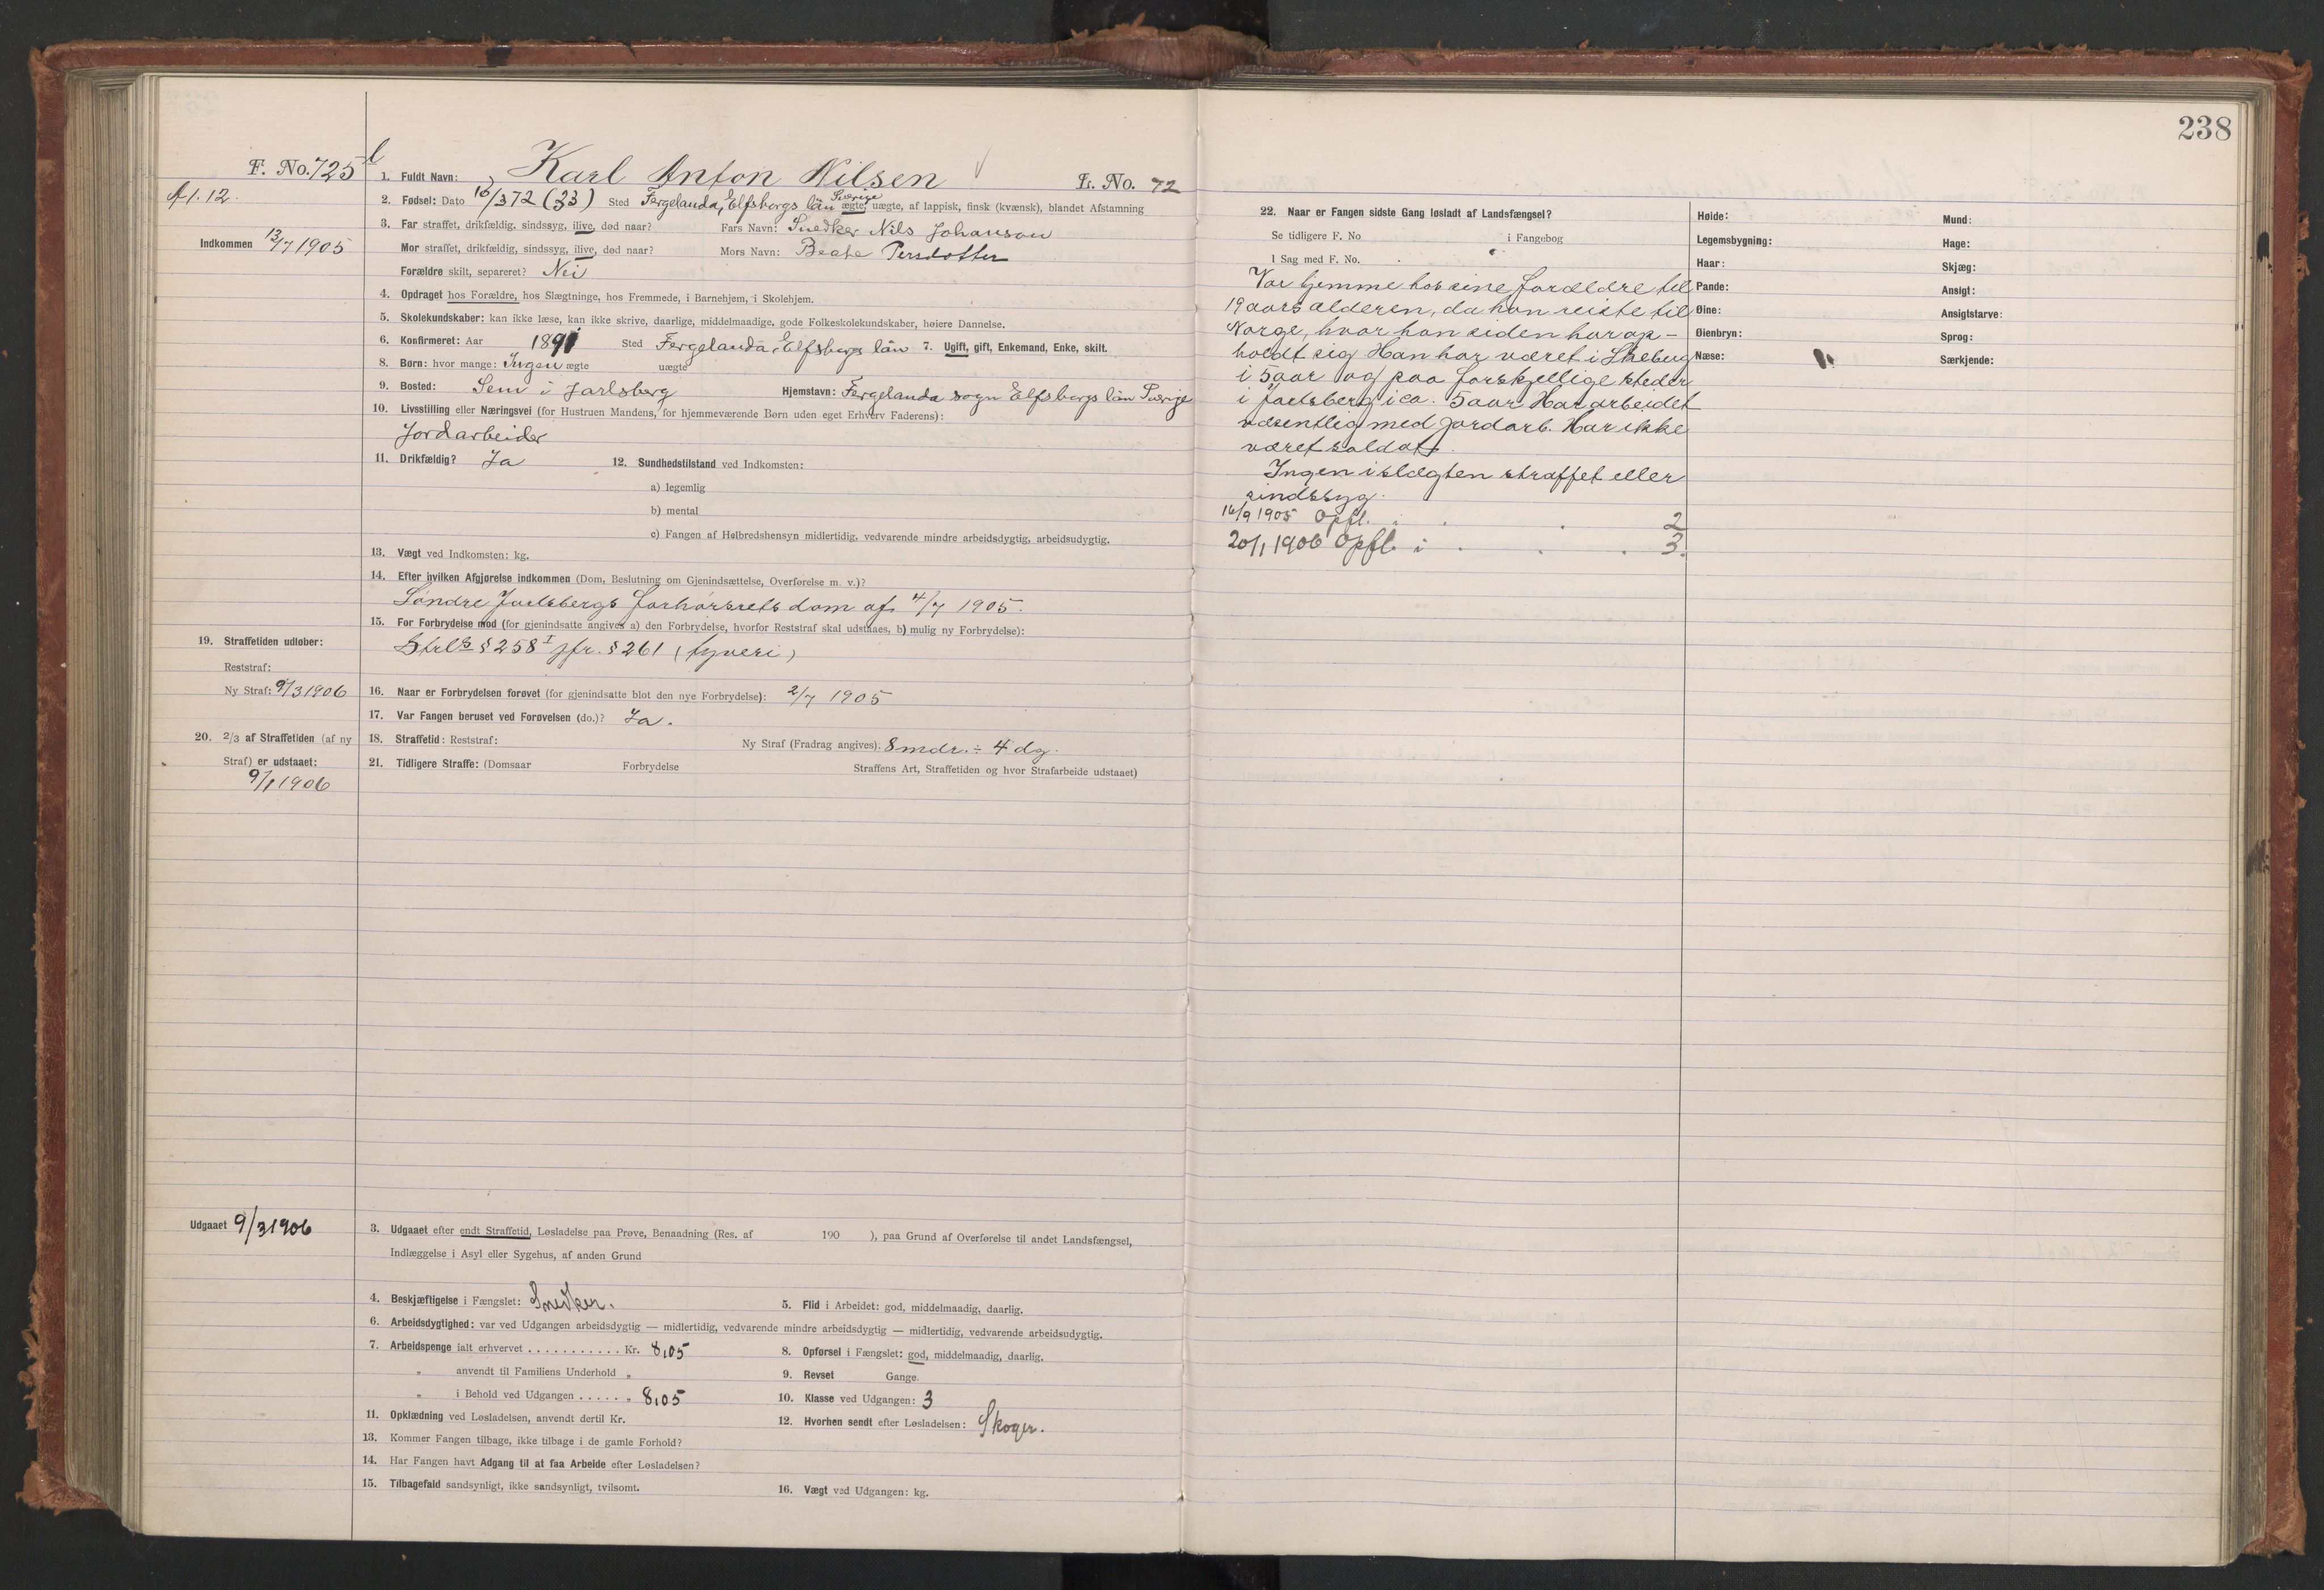 238
F. No. 725
1. Fuldt Navn: Karl Anton Nilsen L. No. 72
A 1. 12.
2. Fødsel: Dato 16/3 72 (33) Sted Fergelanda, Elfsborgs län Sverige ægte, uægte, af lappisk, finsk (kvænsk), blandet Afstamning
Indkommen 13/7 1905
3. Far straffet, drikfældig, sindssyg, ilive, død naar? Fars Navn: Snedker Nils Johanson
Mor straffet, drikfældig, sindssyg, ilive, død naar? Mors Navn: Beate Persdotter
Forældre skilt, separeret? Nei
4. Opdraget hos Forældre, hos Slægtninge, hos Fremmede, i Barnehjem, i Skolehjem.
5. Skolekundskaber: kan ikke læse, kan ikke skrive, daarlige, middelmaadige, gode Folkeskolekundskaber, høiere Dannelse.
6. Konfirmeret: Aar 1891 Sted Fergelanda, Elfsborgs län 7. Ugift, gift, Enkemand, Enke, skilt.
8. Børn: hvor mange: Ingen ægte uægte
9. Bosted: Sem i Jarlsberg Hjemstavn: Fergelanda sogn Elfsborgs län Sverige
10. Livsstilling eller Næringsvei (for Hustruen Mandens, for hjemmeværende Børn uden eget Erhverv Faderens):
Jordarbeider
11. Drikfældig? Ja 12. Sundhedstilstand ved Indkomsten:
a) legemlig
b) mental
c) Fangen af Helbredshensyn midlertidig, vedvarende mindre arbeidsdygtig, arbeidsudygtig.
13. Vægt ved Indkomsten: kg.
14. Efter hvilken Afgjørelse indkommen (Dom, Beslutning om Gjenindsættelse, Overførelse m. v.)?
Søndre Jarlsbergs forhørsrets dom af 4/7 1905.
15. For Forbrydelse mod (for gjenindsatte angives a) den Forbrydelse, hvorfor Reststraf skal udstaaes, b) mulig ny Forbrydelse):
Strl § 258 I jfr. § 261 (tyveri)
19. Straffetiden udløber:
Reststraf:
Ny Straf: 9/3 1906
16. Naar er Forbrydelsen forøvet (for gjenindsatte blot den nye Forbrydelse): 2/7 1905
17. Var Fangen beruset ved Forøvelsen (do.)? Ja.
20. 2/3 af Straffetiden (af ny
Straf) er udstaaet:
9/1 1906
18. Straffetid: Reststraf: Ny Straf (Fradrag angives): 8 mdr. ÷ 4 dg.
21. Tidligere Straffe: (Domsaar Forbrydelse Straffens Art, Straffetiden og hvor Strafarbeide udstaaet)
Udgaaet 9/3 1906
3. Udgaaet efter endt Straffetid, Løsladelse paa Prøve, Benaadning (Res. af 190 ), paa Grund af Overførelse til andet Landsfængsel,
Indlæggelse i Asyl eller Sygehus, af anden Grund
4. Beskjæftigelse i Fængslet: Snedker. 5. Flid i Arbeidet: god, middelmaadig, daarlig.
6. Arbeidsdygtighed: var ved Udgangen arbeidsdygtig — midlertidig, vedvarende mindre arbeidsdygtig — midlertidig, vedvarende arbeidsudygtig.
7. Arbeidspenge ialt erhvervet . . . . . . . . . . . Kr. 8,05 8. Opførsel i Fængslet: god, middelmaadig, daarlig.
„ anvendt til Familiens Underhold „ 9. Revset Gange.
„ i Behold ved Udgangen . . . . . „ 8,05 10. Klasse ved Udgangen: 3
11. Opklædning ved Løsladelsen, anvendt dertil Kr. 12. Hvorhen sendt efter Løsladelsen: Skoger.
13. Kommer Fangen tilbage, ikke tilbage i de gamle Forhold?
14. Har Fangen havt Adgang til at faa Arbeide efter Løsladelsen?
15. Tilbagefald sandsynligt, ikke sandsynligt, tvilsomt. 16. Vægt ved Udgangen: kg.
22. Naar er Fangen sidste Gang løsladt af Landsfængsel?
Se tidligere F. No i Fangebog
I Sag med F. No.
Var hjemme hos sine forældre til
19 aars alderen, da han reiste til
Norge, hvor han siden har op-
holdt sig. Han har været i Skeberg
i 5 aar og paa forskjellige steder
i Jarlsberg i ca. 5 aar. Har arbeidet
væsentlig med jordarb. Har ikke
været soldat.
Ingen i slægten straffet eller
sindssyg.
16/9 1905 Opfl. i . . . 2
20/1 1906 Opfl. i . . . 3.
Høide: Mund:
Legemsbygning: Hage:
Haar: Skjæg:
Pande: Ansigt:
Øine: Ansigtsfarve:
Øienbryn: Sprog:
Næse: Særkjende: